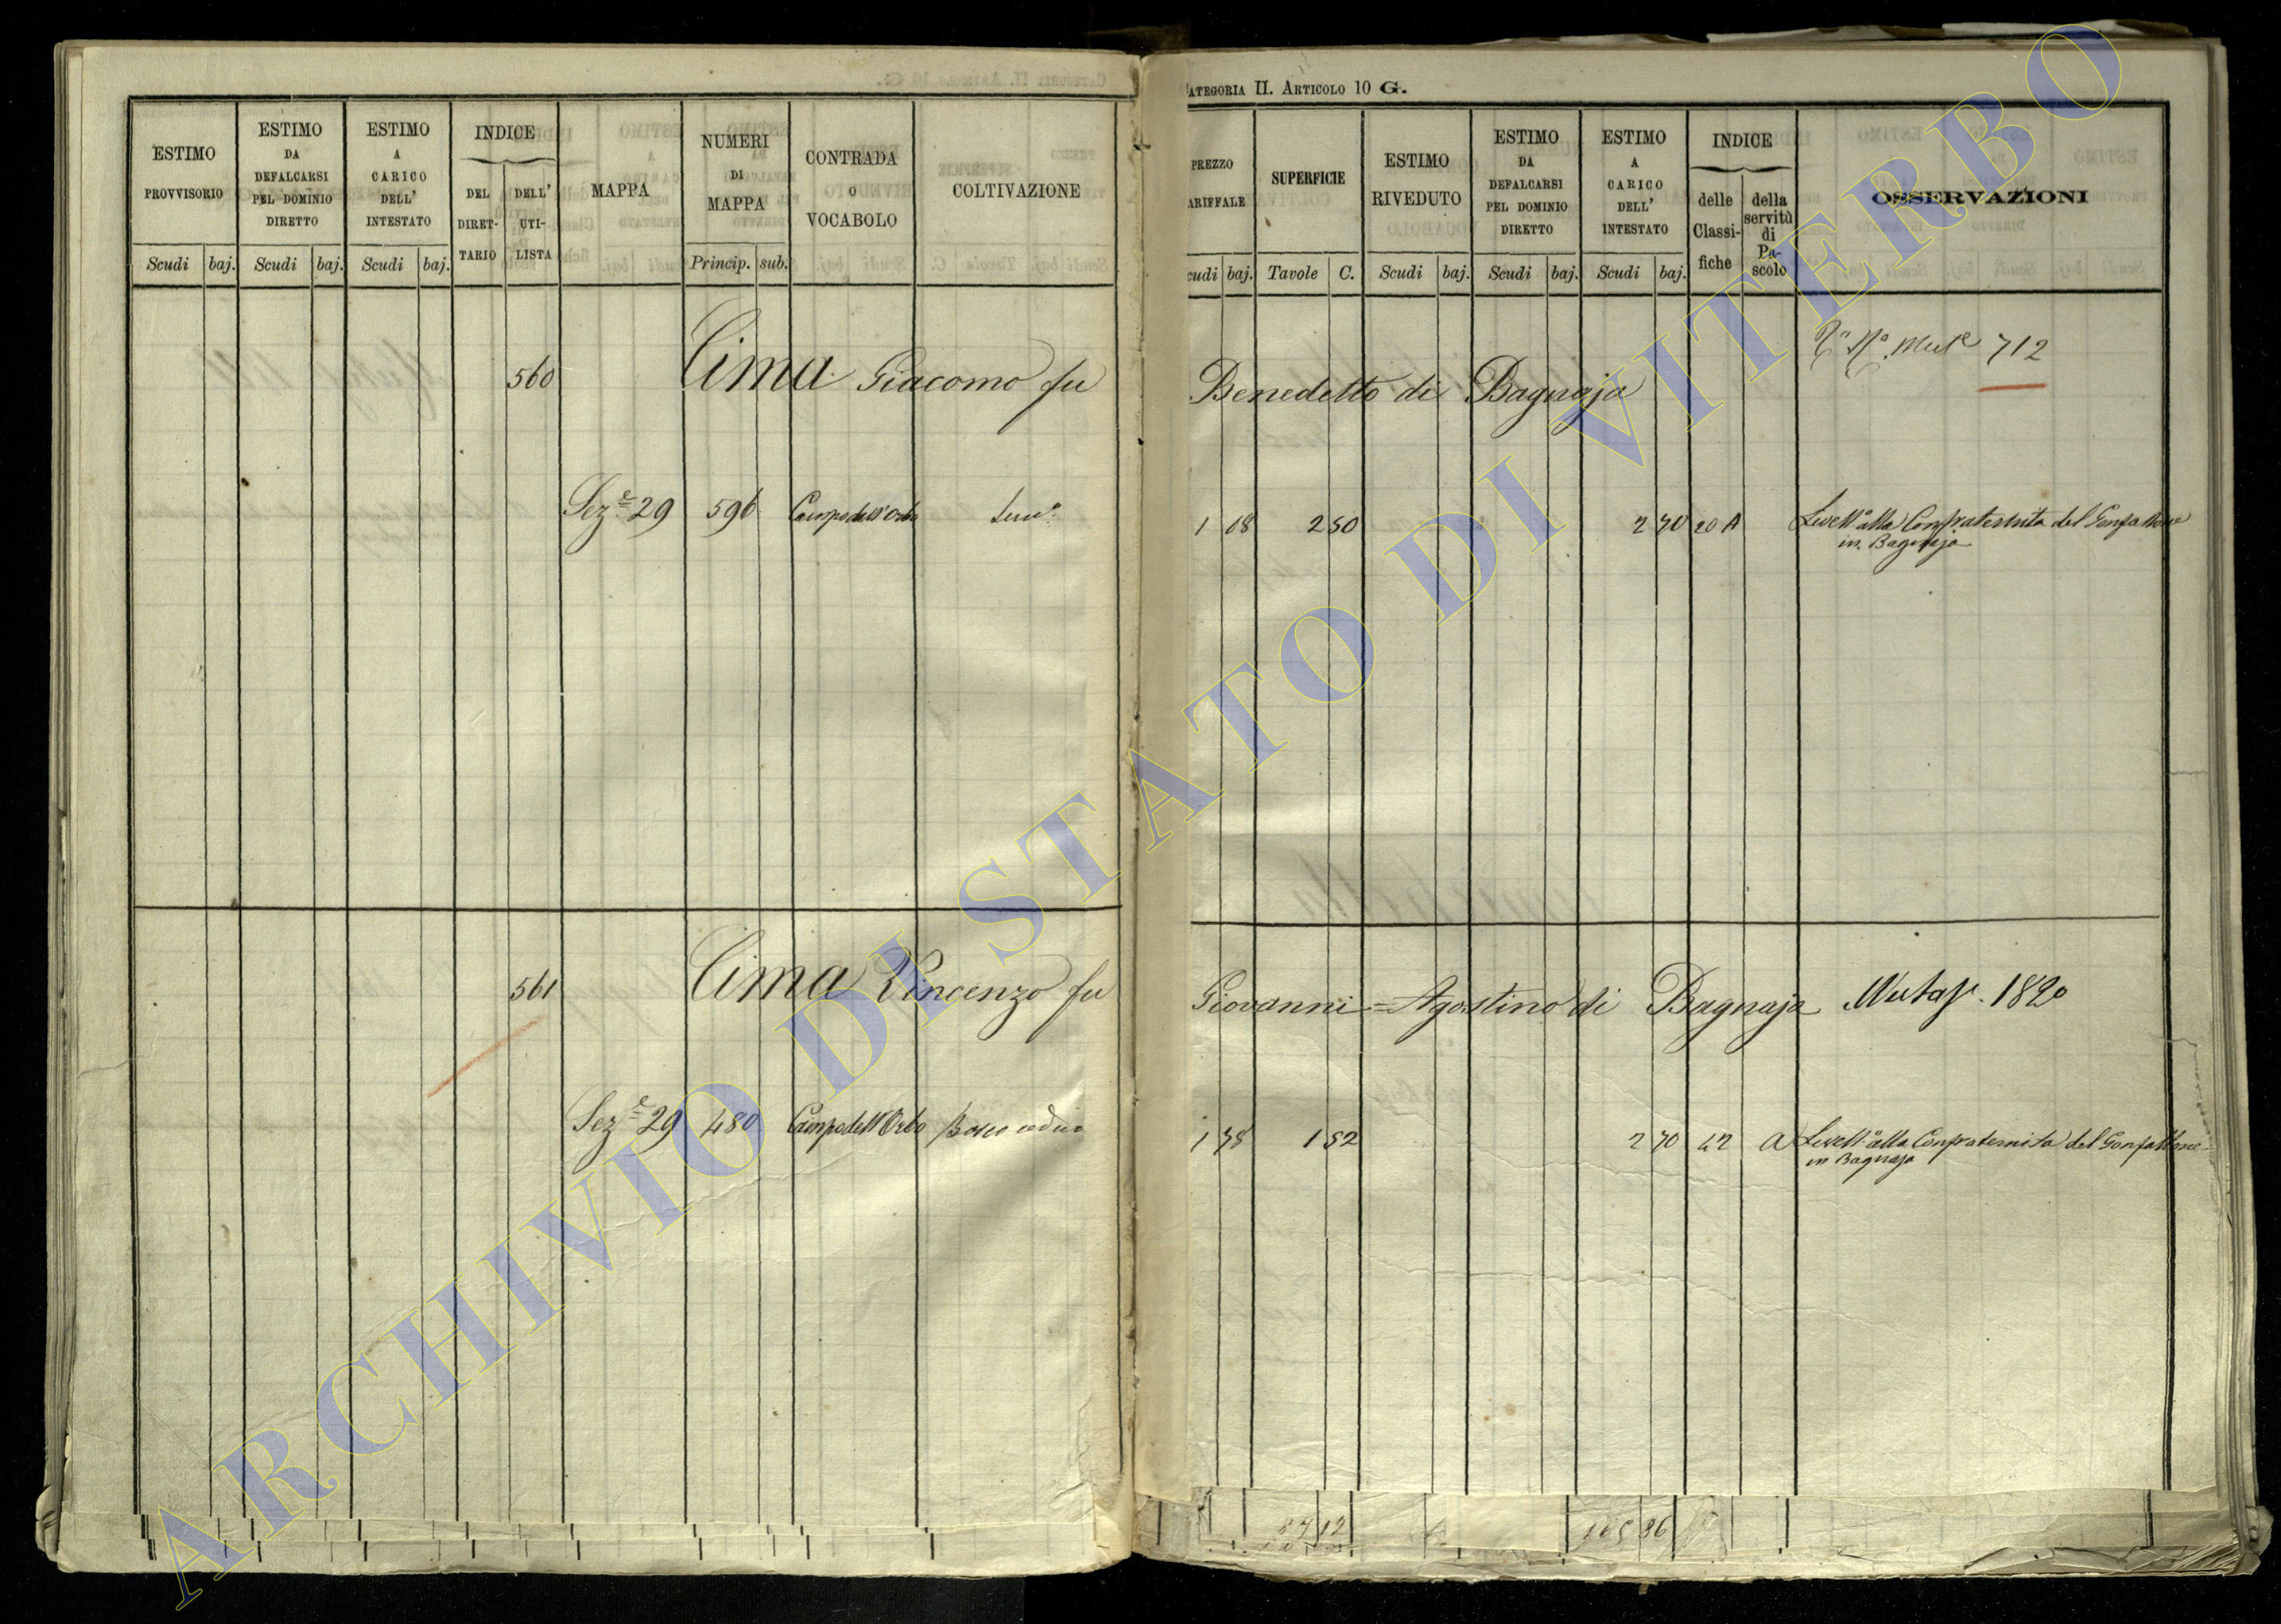 CATEGORIA II. ARTICOLO 10 G.
ESTIMO PROVVISORIO
Scudi baj.
ESTIMO DA DEFALCARSI PEL DOMINIO DIRETTO
Scudi baj.
ESTIMO A CARICO DELL' INTESTATO
Scudi baj.
INDICE
DEL DIRET-TARIO
DELL' UTI-LISTA
MAPPA
NUMERI DI MAPPA
Princip. sub.
CONTRADA O VOCABOLO
COLTIVAZIONE
PREZZO ARIFFALE
cudi baj.
SUPERFICIE
Tavole C.
ESTIMO RIVEDUTO
Scudi baj.
ESTIMO DA DEFALCARSI PEL DOMINIO DIRETTO
Scudi baj.
ESTIMO A CARICO DELL' INTESTATO
Scudi baj.
INDICE
delle Classi-fiche
della servitù di Pa-scolo
OSSERVAZIONI
712
560 Cima Giacomo fu Benedetto di Bagnaja
Sez.e 29 596 Campo dell'Orbo 1 08 2 50 2 70 20 A Livell.o alla Confraternita del Gonfallone
in Bagnaja
561 Cima Vincenzo fu Giovanni = Agostino di Bagnaja 1820
Sez.e 29 480 Campo dell'Orbo Bosco ceduo 1 78 1 52 2 70 42 A Livell.o alla Confraternita del Gonfallone
in Bagnaja
87 12
ARCHIVIO DI STATO DI VITERBO